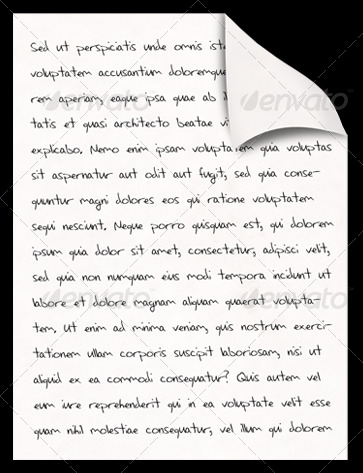 Sed ut perspiciatis unde omnis iste
voluptatem accusantium doloremque
rem aperiam, eaque ipsa quae ab
tatis et quasi architecto beatae vi
explicabo. Nemo enim ipsam voluptatem quia voluptas
sit aspernatur aut odit aut fugit, sed quia conse-
quuntur magni dolores eos qui ratione voluptatem
sequi nesciunt. Neque porro quisquam est, qui dolorem
ipsum quia dolor sit amet, consectetur, adipisci velit,
sed quia non numquam eius modi tempora incidunt ut
labore et dolore magnam aliquam quaerat volupta-
tem. Ut enim ad minima veniam, quis nostrum exerci-
tationem ullam corporis suscipit laboriosam, nisi ut
aliquid ex ea commodi consequatur? Quis autem vel
eum iure reprehenderit qui in ea voluptate velit esse
quam nihil molestiae consequatur, vel illum qui dolorem
envato
envato
envato
envato